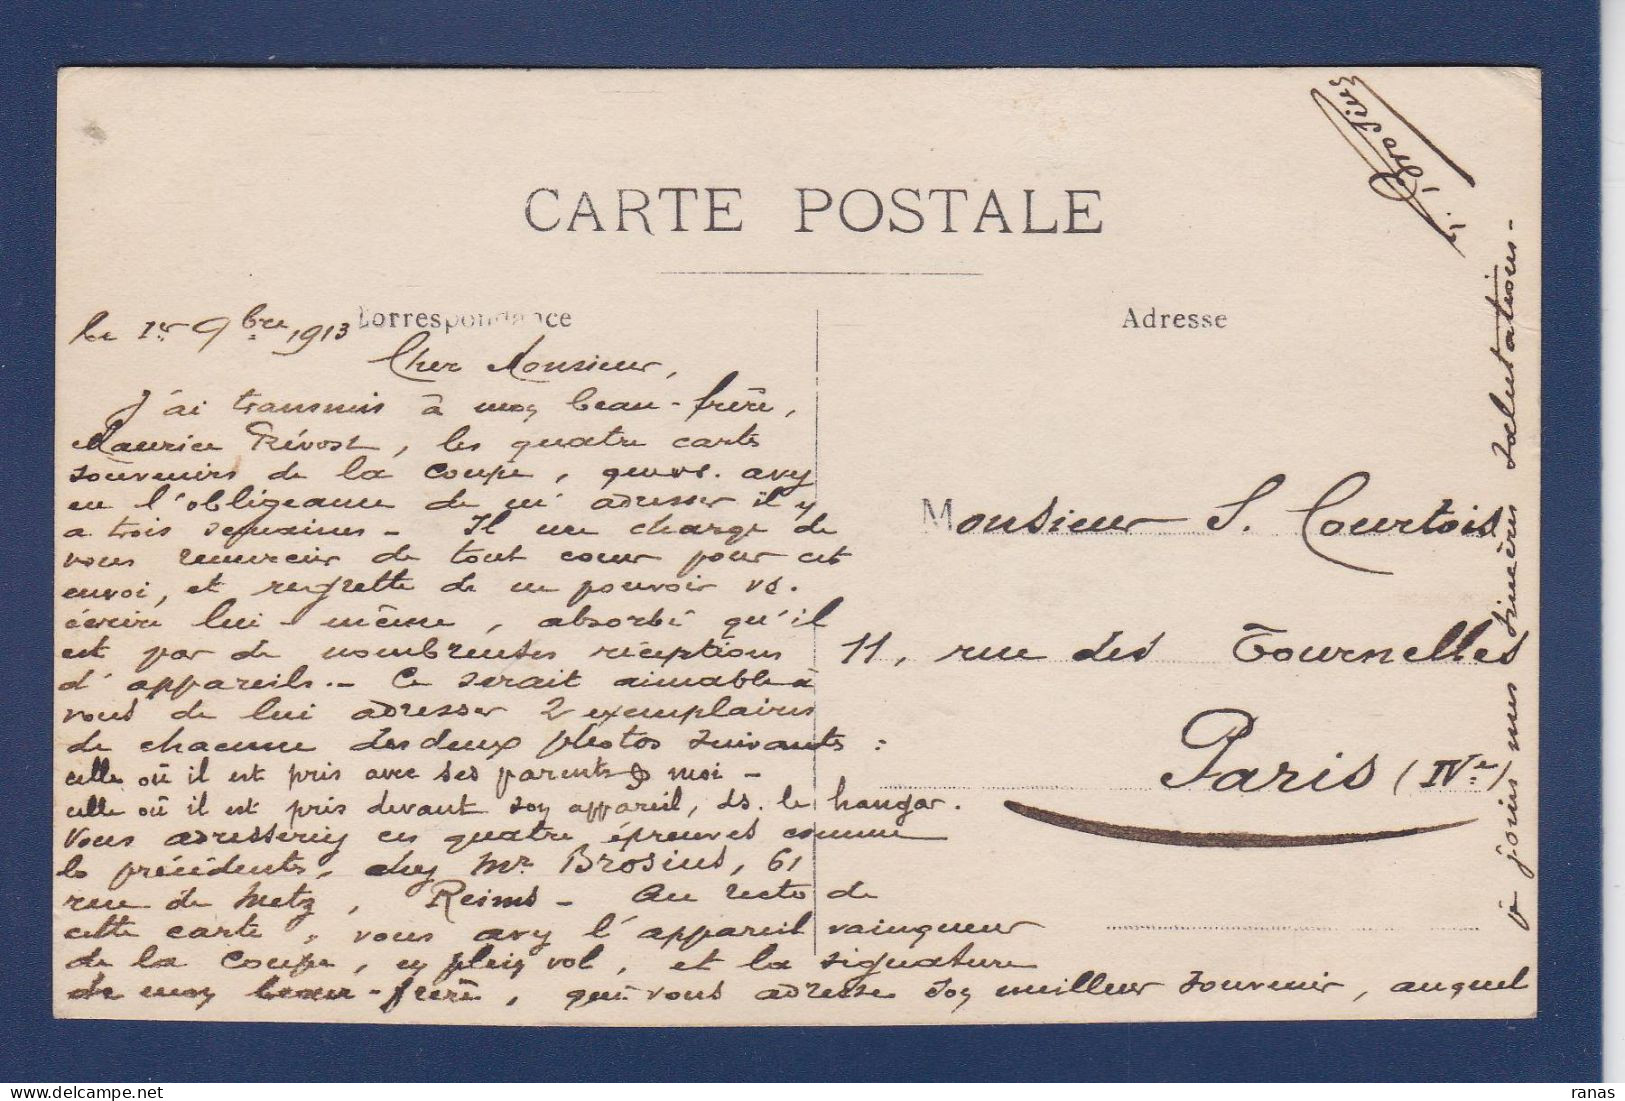 CARTE POSTALE
Correspondance
Adresse
le 1er 9bre 1913
Cher Monsieur,
J'ai transmis à mon beau-frère,
Maurice Prévost, les quatre cartes
souvenirs de la coupe, que vs. avez
eu l'obligeance de m'adresser il y
a trois semaines - Il me charge de
vous remercier de tout cœur pour cet
envoi, et regrette de ne pouvoir vs.
écrire lui-même, absorbé qu'il
est par de nombreuses réceptions
d'appareils. - Ce serait aimable à
vous de lui adresser 2 exemplaires
de chacune des deux photos suivantes :
celle où il est pris avec ses parents & moi -
celle où il est pris devant son appareil, ds. le hangar.
Vous adresseriez ces quatre épreuves comme
les précédentes, chez Mr Brosius, 61
rue de Metz, Reims - Au recto de
cette carte, vous avez l'appareil vainqueur
de la Coupe, en plein vol, et la signature
de mon beau-frère, qui vous adresse son meilleur souvenir, auquel
je joins mes sincères salutations -
J. Brosius
Monsieur S. Courtois
11, rue des Tournelles
Paris (IVe)
ranas